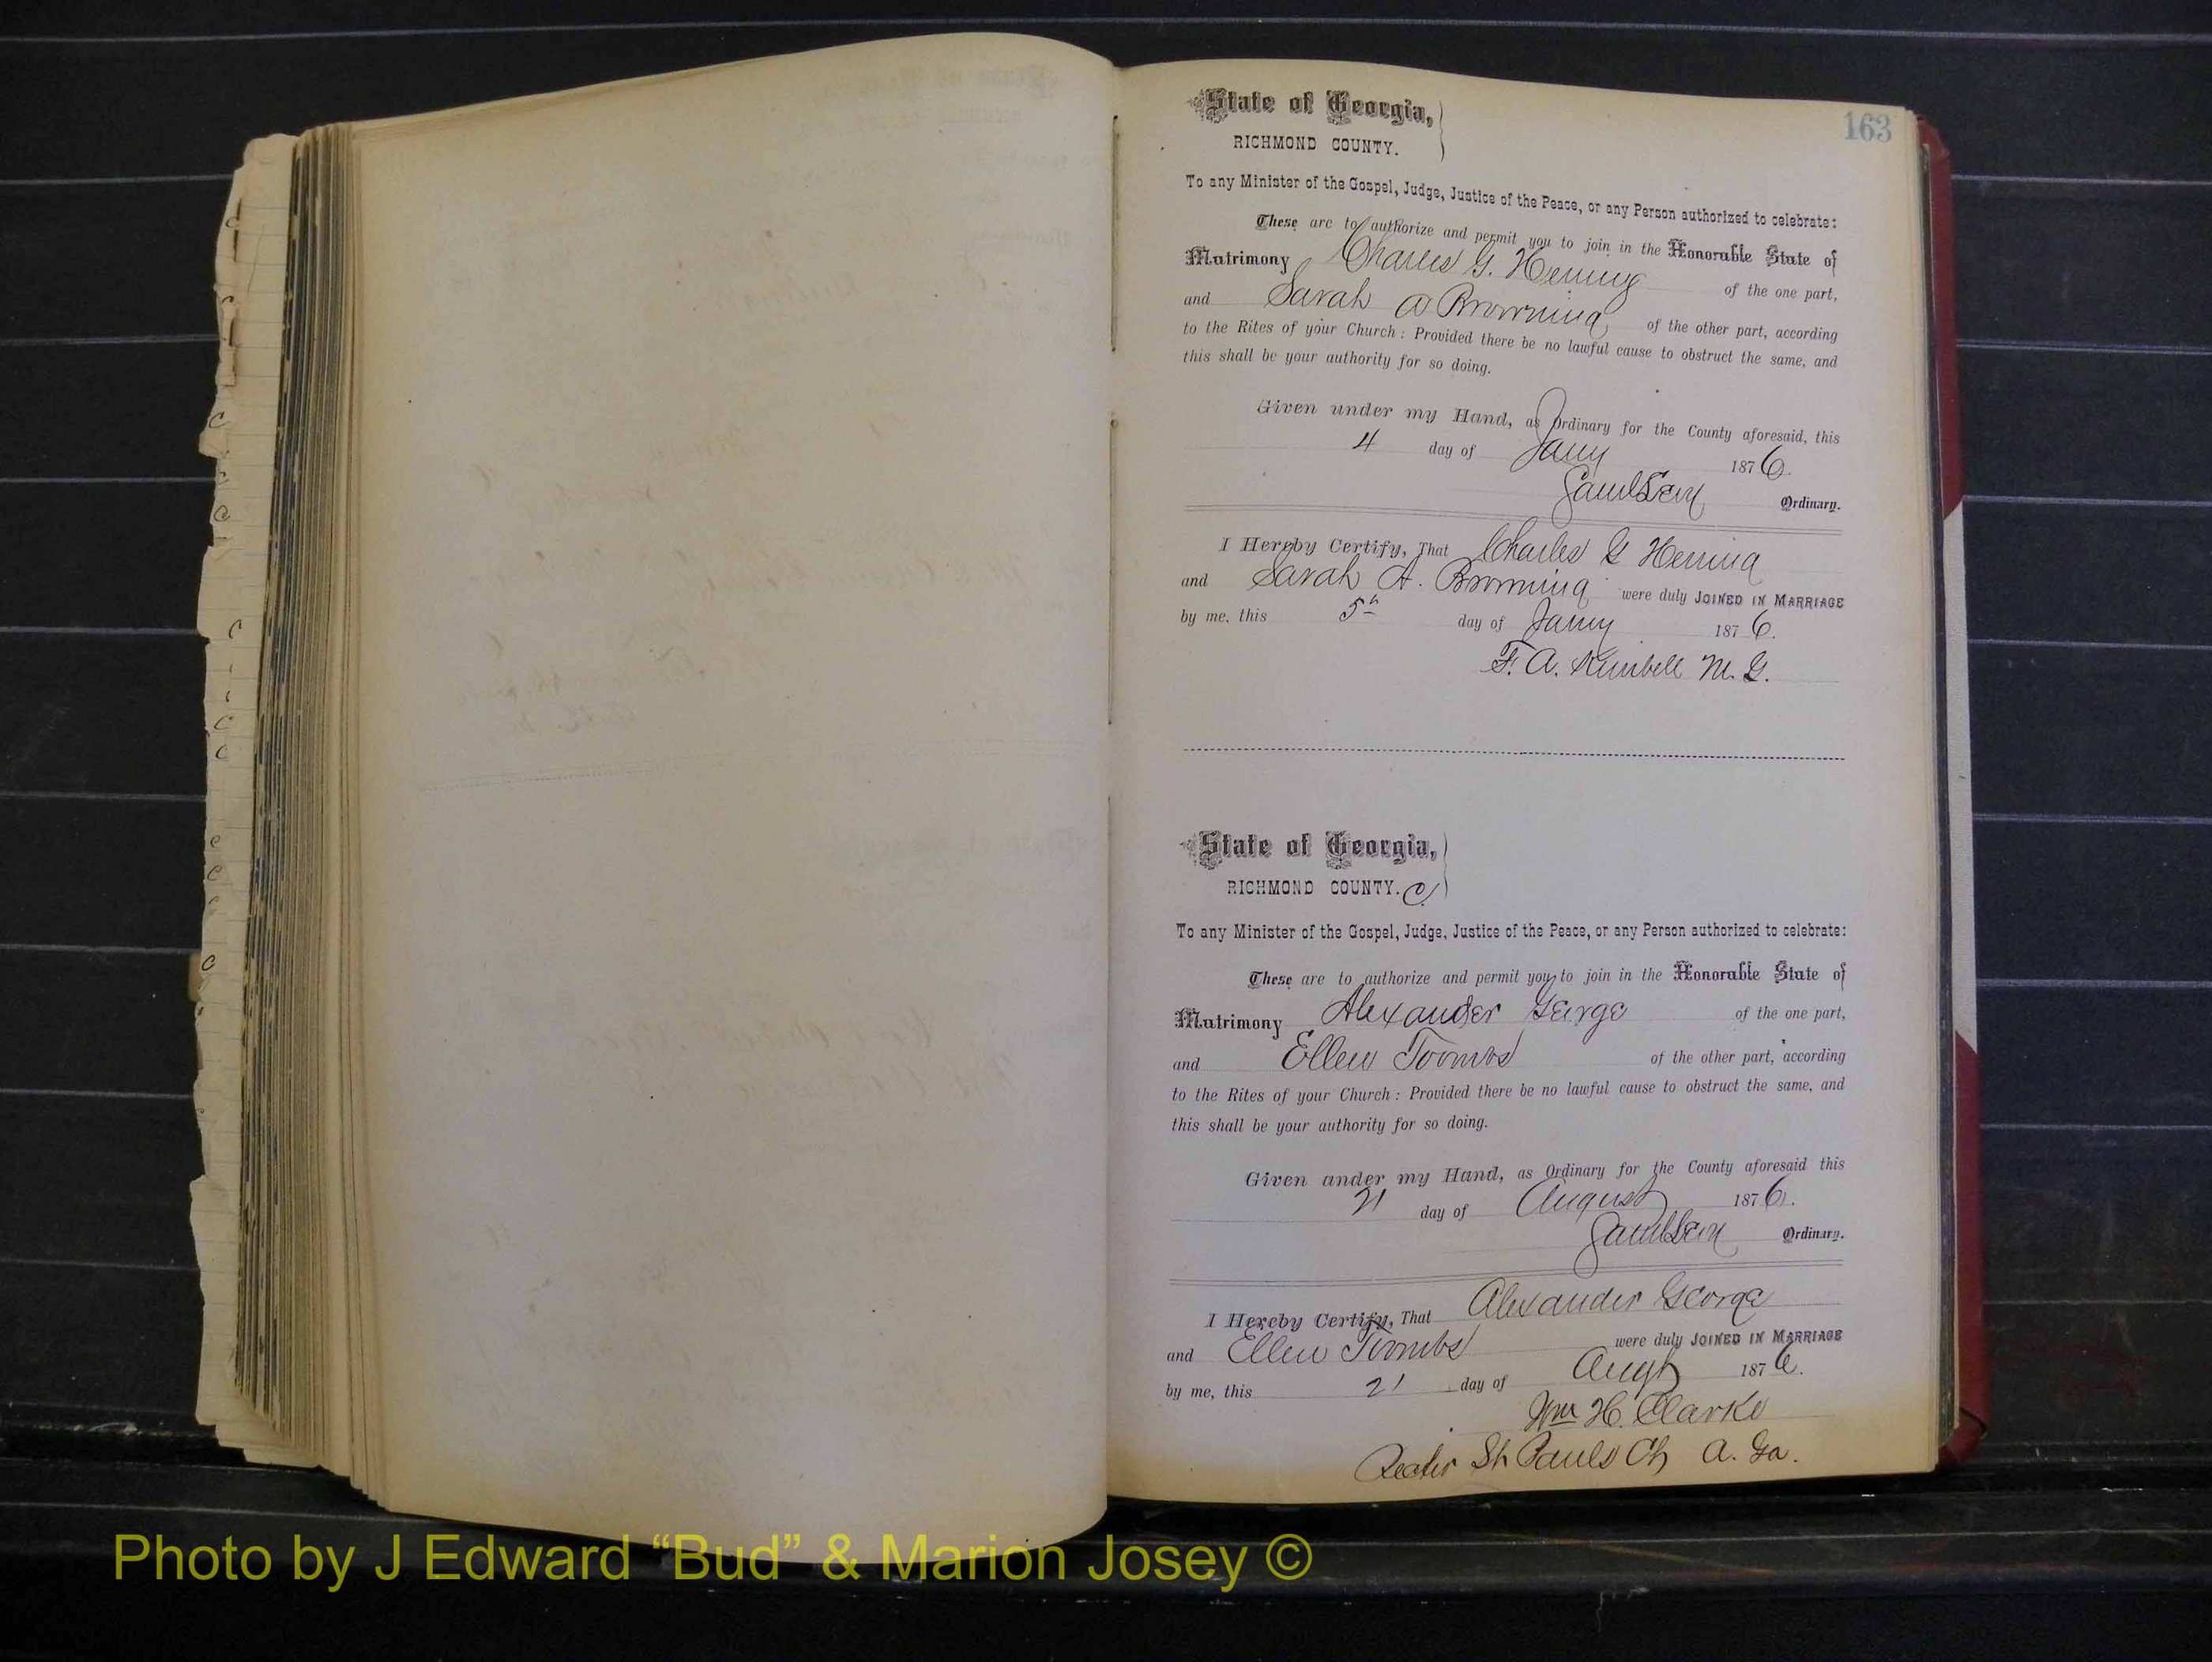 163
State of Georgia,
RICHMOND COUNTY.
To any Minister of the Gospel, Judge, Justice of the Peace, or any Person authorized to celebrate:
These are to authorize and permit you to join in the Honorable State of
Matrimony Charles G. Herring of the one part,
and Sarah A Browning of the other part, according
to the Rites of your Church: Provided there be no lawful cause to obstruct the same, and
this shall be your authority for so doing.
Given under my Hand, as Ordinary for the County aforesaid, this
4 day of Jany 1876.
Saml Levy Ordinary.
I Hereby Certify, That Charles G Herring
and Sarah A. Browning were duly JOINED IN MARRIAGE
by me, this 5th day of Jany 1876.
F. A. Kimbell M. G.
State of Georgia,
RICHMOND COUNTY. C.
To any Minister of the Gospel, Judge, Justice of the Peace, or any Person authorized to celebrate:
These are to authorize and permit you to join in the Honorable State of
Matrimony Alexander George of the one part,
and Ellen Toombs of the other part, according
to the Rites of your Church: Provided there be no lawful cause to obstruct the same, and
this shall be your authority for so doing.
Given under my Hand, as Ordinary for the County aforesaid this
21 day of August 1876.
Saml Levy Ordinary.
I Hereby Certify, That Alexander George
and Ellen Toombs were duly JOINED IN MARRIAGE
by me, this 21 day of Augt 1876.
Wm H. Clarke
Rector St Pauls Ch A. Ga.
Photo by J Edward “Bud” & Marion Josey ©